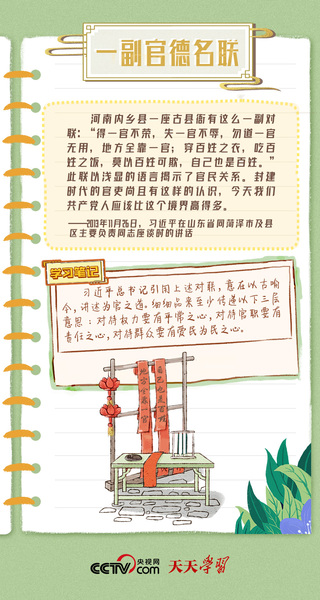 一副官德名联
河南内乡县一座古县衙有这么一副对
联：“得一官不荣，失一官不辱，勿道一官
无用，地方全靠一官；穿百姓之衣，吃百
姓之饭，莫以百姓可欺，自己也是百姓。”
此联以浅显的语言揭示了官民关系。封建
时代的官吏尚且有这样的认识，今天我们
共产党人应该比这个境界高得多。
——2013年11月26日，习近平在山东省同菏泽市及县
区主要负责同志座谈时的讲话
学习笔记
习近平总书记引用上述对联，意在以古喻
今，讲述为官之道。细细品来至少传递以下三层
意思：对待权力要有平常之心，对待官职要有
责任之心，对待群众要有爱民为民之心。
地方全靠一官
自己也是百姓
CCTV 央视网 .com 天天学习